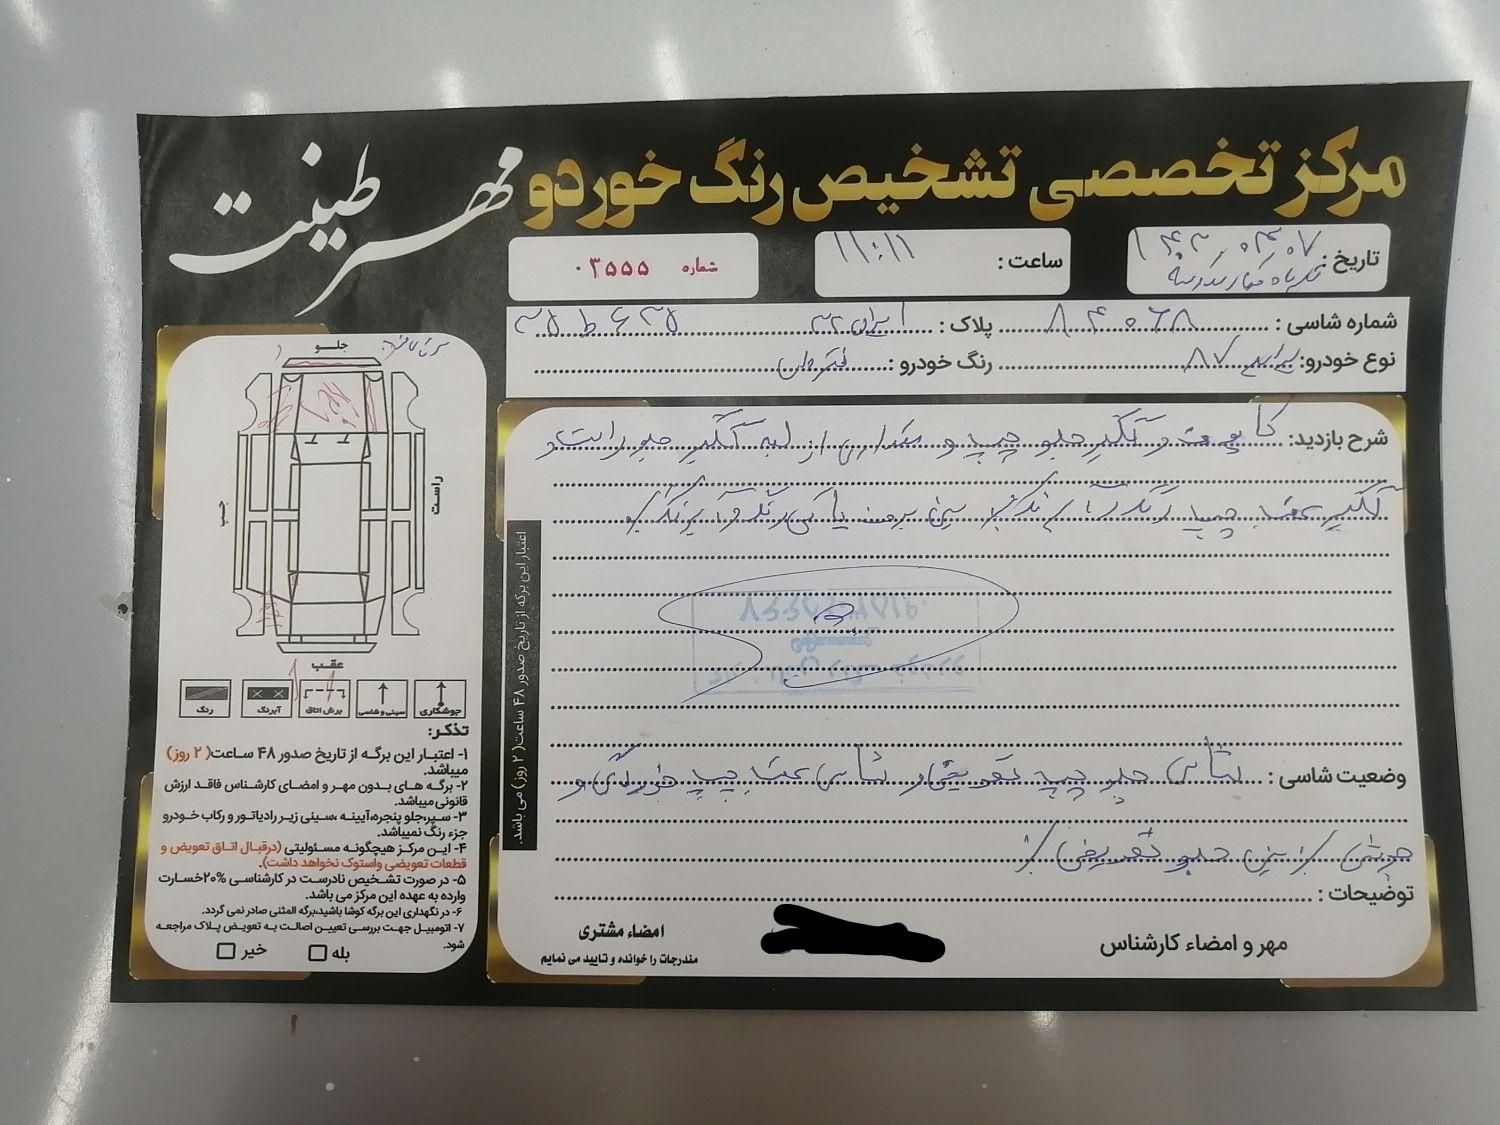 مرکز تخصصی تشخیص رنگ خوردو
مهر طینت
تاریخ : ۱۴۰۳،۰۴،۰۷
ساعت : ۱۱:۱۱
شماره ۰۳۵۵۵
شماره شاسی :
پلاک : ایران
نوع خودرو: ۸۷
رنگ خودرو :
شرح بازدید: کاپوت و گلگیر جلو چپ و مقداری از لبه گلگیر جلو راست و
گلگیر عقب چپ رنگ
وضعیت شاسی : شاسی جلو چپ تعویض و شاسی عقب چپ خوردگی و
جوشی سینی جلو تعویض
توضیحات :
مهر و امضاء کارشناس
امضاء مشتری
مندرجات را خوانده و تایید می نمایم
اعتبار این برگه از تاریخ صدور ۴۸ ساعت( ۲ روز) می باشد.
جلو
چپ
راست
عقب
جوشکاری
سینی و شاسی
برش اتاق
آبرنگ
رنگ
تذکر:
۱- اعتبار این برگه از تاریخ صدور ۴۸ ساعت( ۲ روز)
میباشد.
۲- برگه های بدون مهر و امضای کارشناس فاقد ارزش
قانونی میباشد.
۳- سپر،جلو پنجره،آیینه ،سینی زیر رادیاتور و رکاب خودرو
جزء رنگ نمیباشد.
۴- این مرکز هیچگونه مسئولیتی (درقبال اتاق تعویض و
قطعات تعویضی واستوک نخواهد داشت).
۵- در صورت تشخیص نادرست در کارشناسی ۲۰%خسارت
وارده به عهده این مرکز می باشد.
۶- در نگهداری این برگه کوشا باشید،برگه المثنی صادر نمی گردد.
۷- اتومبیل جهت بررسی تعیین اصالت به تعویض پلاک مراجعه
شود.
بله
خیر